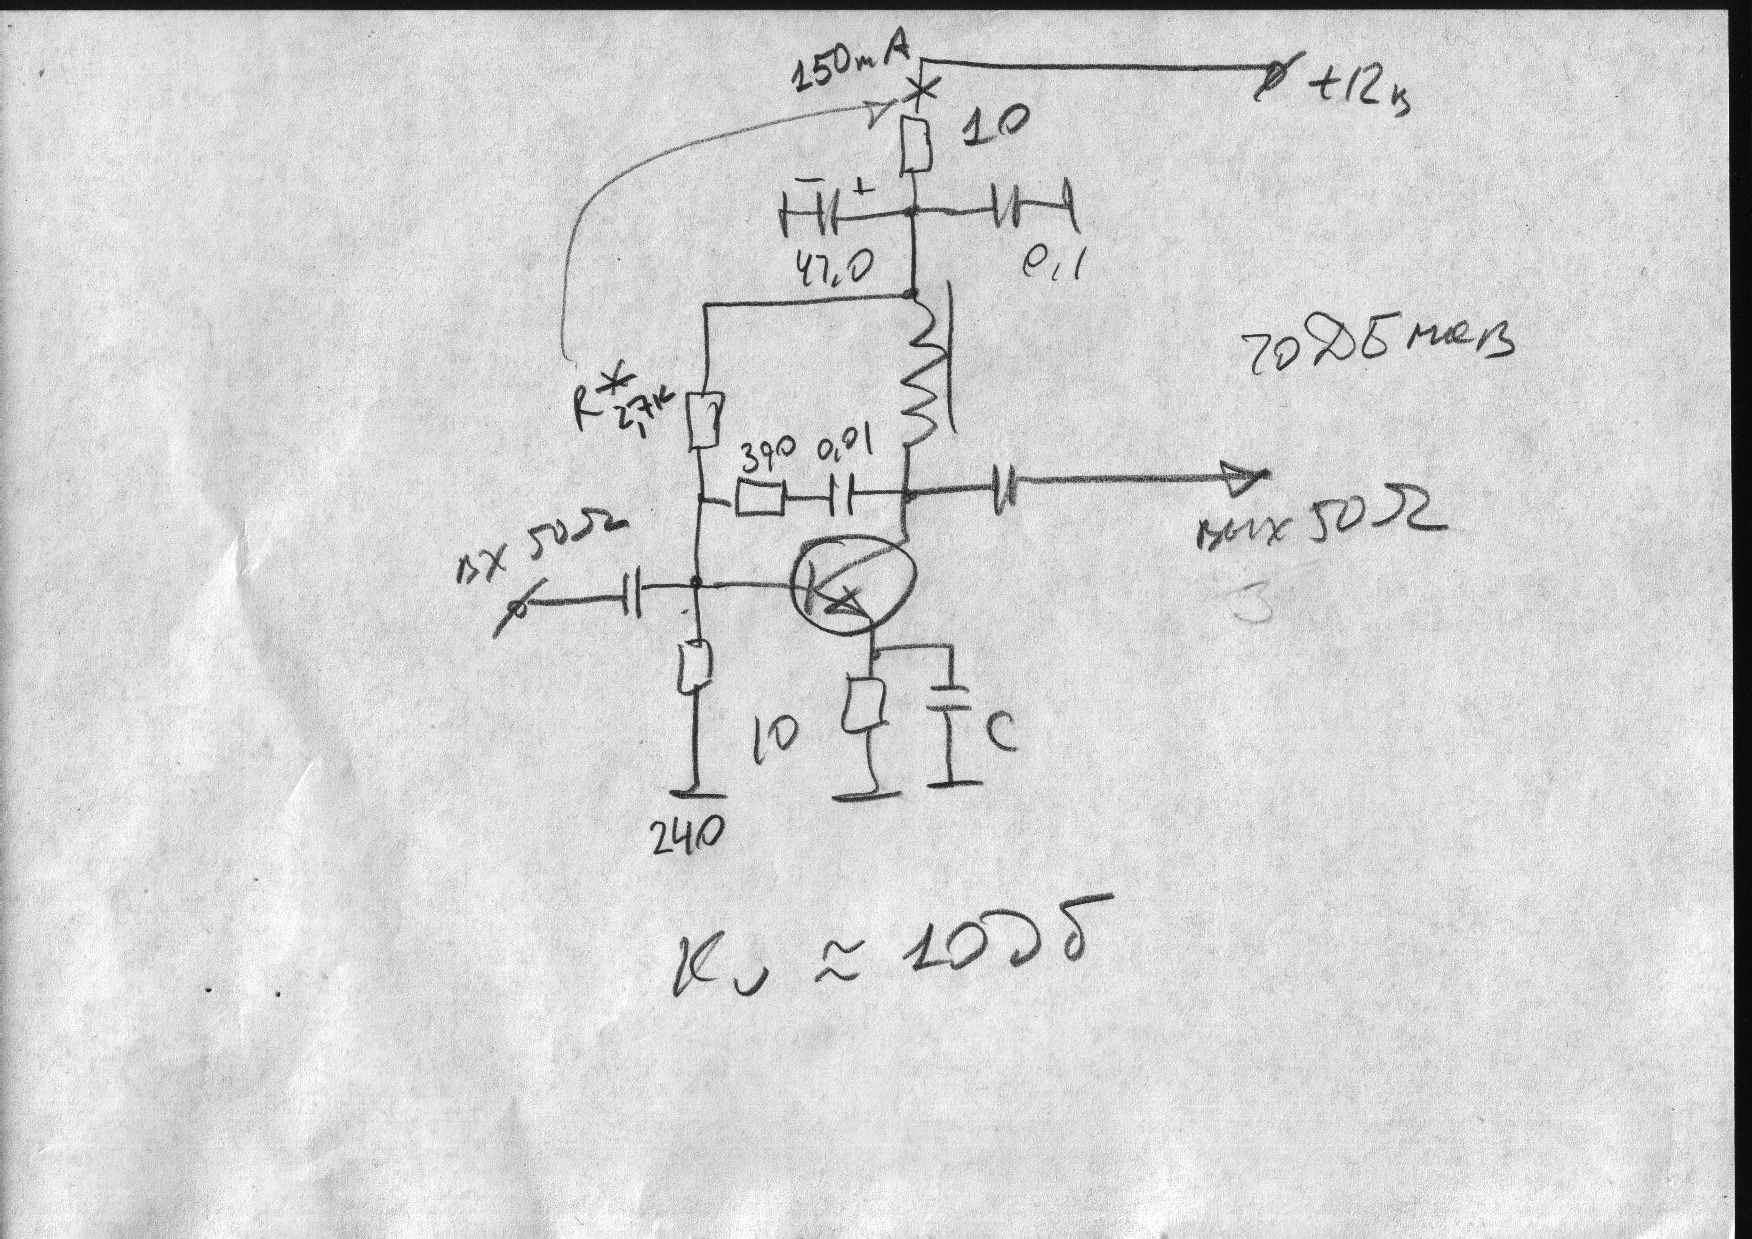 150mA
+12в
10
- +
47,0
0,1
70дБмкВ
R* 2,7к
390
0,01
вх 50Ω
вых 50Ω
10
C
240
Ku ≈ 10дб